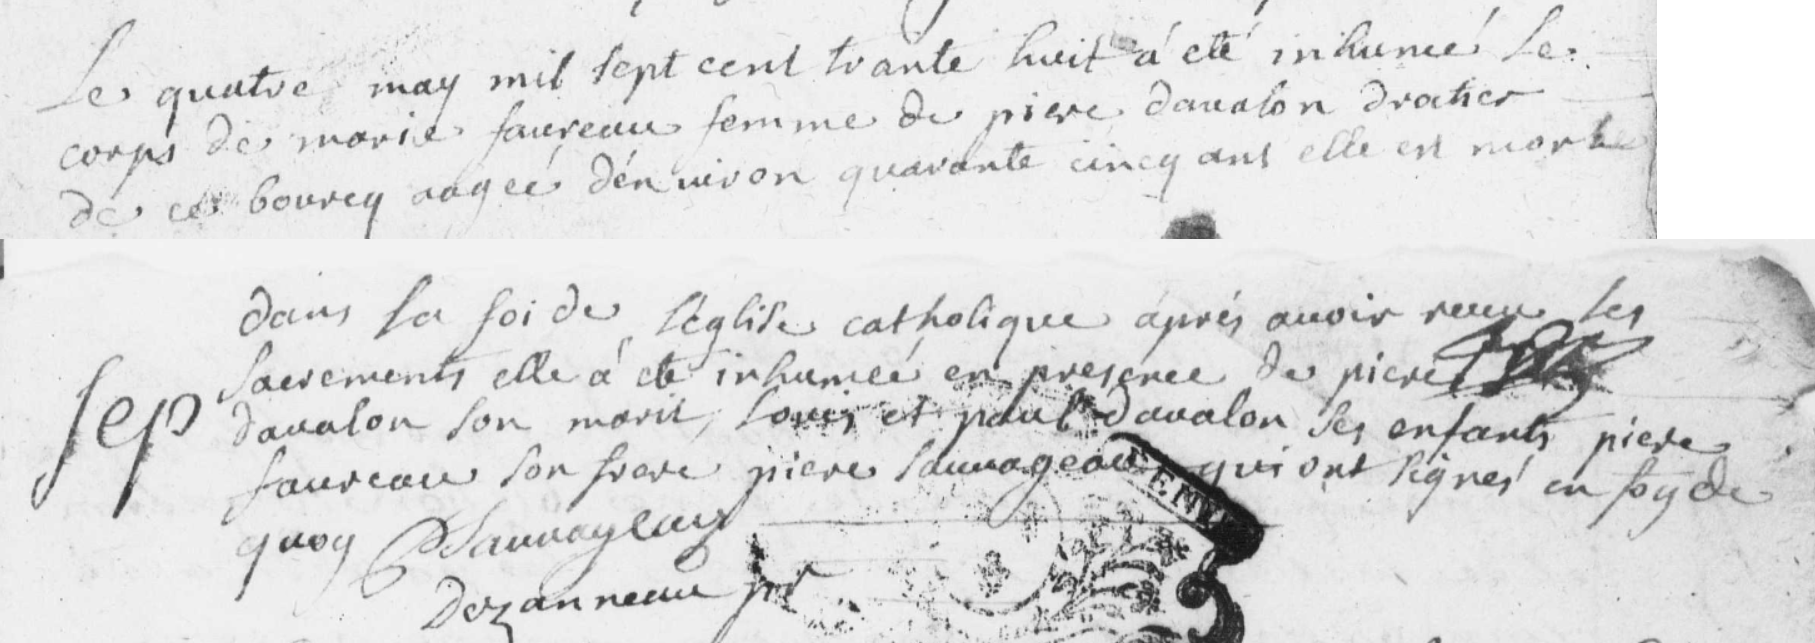 Le quatre may mil sept cent trante huit á eté inhumé Le
corps de marie faureau femme de piere davalon dratier
de ce bourcq aageé d'énuiron quarante cincq ans elle est morte
dans la foi de L'église catholique áprés auoir receu les
Sacrements elle á eté inhumeé en presence de piere
davalon son marit, Louis et paul davalon ses enfants piere
Sep
faureau son frere piere sauuageau qui ont signés en foy de
quoy PSauuageau
Dezanneau pr